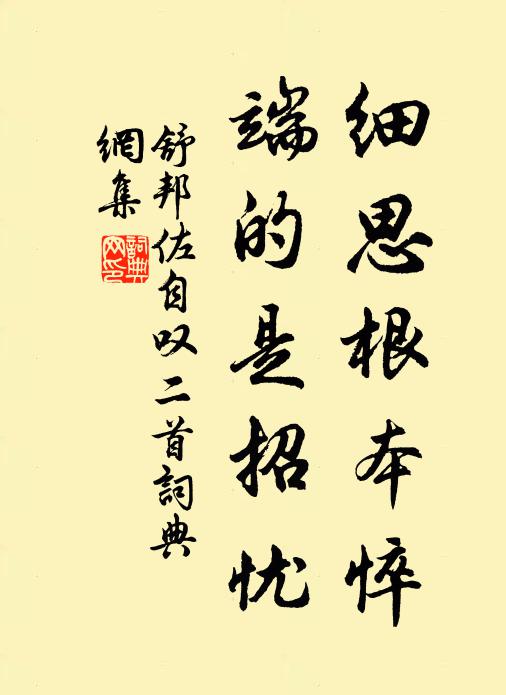 细思根本悴
端的是招忧
舒邦佐自叹二首詞典
網集
詞典网印